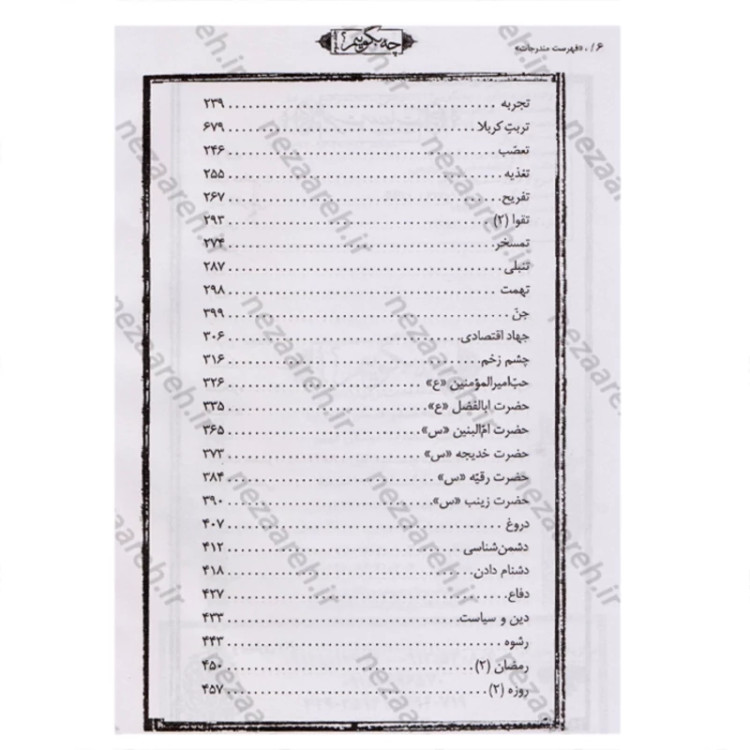 ۶ / . «فهرست مندرجات»
چه بگوییم؟
تجربه ........ ۲۳۹
تربت کربلا ........ ۶۷۹
تعصّب ........ ۲۴۶
تغذیه ........ ۲۵۵
تفریح ........ ۲۶۷
تقوا (۲) ........ ۲۹۳
تمسخر ........ ۲۷۴
تنبلی ........ ۲۸۷
تهمت ........ ۲۹۸
جنّ ........ ۳۹۹
جهاد اقتصادی ........ ۳۰۶
چشم زخم ........ ۳۱۶
حبّ امیرالمؤمنین «ع» ........ ۳۲۶
حضرت ابالفضل «ع» ........ ۳۳۵
حضرت امّ‌البنین «س» ........ ۳۶۵
حضرت خدیجه «س» ........ ۳۷۳
حضرت رقیّه «س» ........ ۳۸۴
حضرت زینب «س» ........ ۳۹۰
دروغ ........ ۴۰۷
دشمن‌شناسی ........ ۴۱۲
دشنام دادن ........ ۴۱۸
دفاع ........ ۴۲۷
دین و سیاست ........ ۴۳۳
رشوه ........ ۴۴۳
رمضان (۲) ........ ۴۵۰
روزه (۲) ........ ۴۵۷
nezaareh.ir